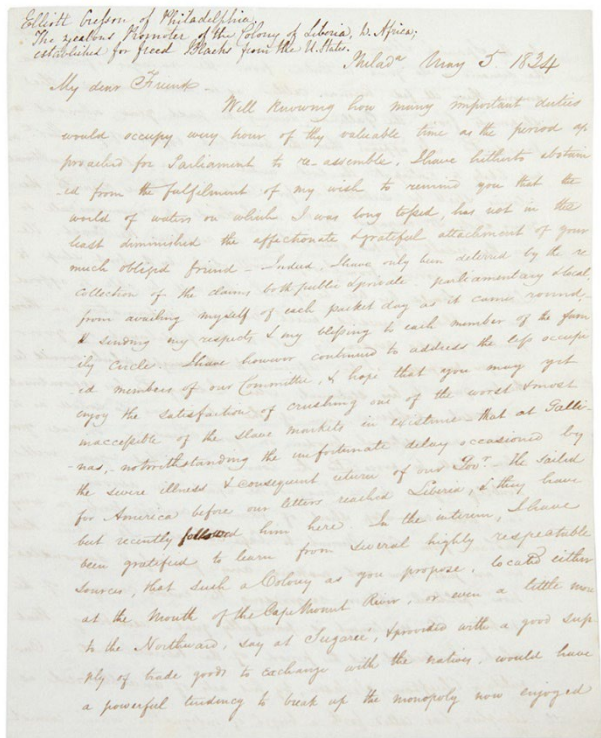 Elliott Cresson of Philadelphia,
The zealous Promoter of the Colony of Liberia, W. Africa;
established for freed Blacks from the U. States.
Philad.ᵃ May 5 1834
My dear Friend -
Well knowing how many important duties
would occupy every hour of thy valuable time as the period ap
proached for Parliament to re-assemble, I have hitherto abstain
-ed from the fulfilment of my wish to remind you that the
world of waters on which I was long tossed, has not in the
least diminished the affectionate & grateful attachment of your
much obliged friend - Indeed, I have only been deterred by the re
collection of the claims both public & private, parliamentary & local
from availing myself of each packet day as it came round -
& sending my respects & my blessing to each member of the fam
ily circle. I have however continued to address the less occupi
ed members of our Committee, & hope that you may yet
enjoy the satisfaction of crushing one of the worst & most
inaccessible of the slave markets in existence - that at Galli-
-nas, - notwithstanding the unfortunate delay occasioned by
the severe illness & consequent return of our Gov.ʳ - He sailed
for America before our letters reached Liberia, & they have
but recently followed him here In the interim, I have
been gratified to learn from several highly respectable
sources, that such a Colony as you propose, located either
at the Mouth of the Cape Mount River, or even a little more
to the Northward, say at Sugaree, & provided with a good sup
ply of trade goods to exchange with the natives, would have
a powerful tendency to break up the monopoly now enjoyed